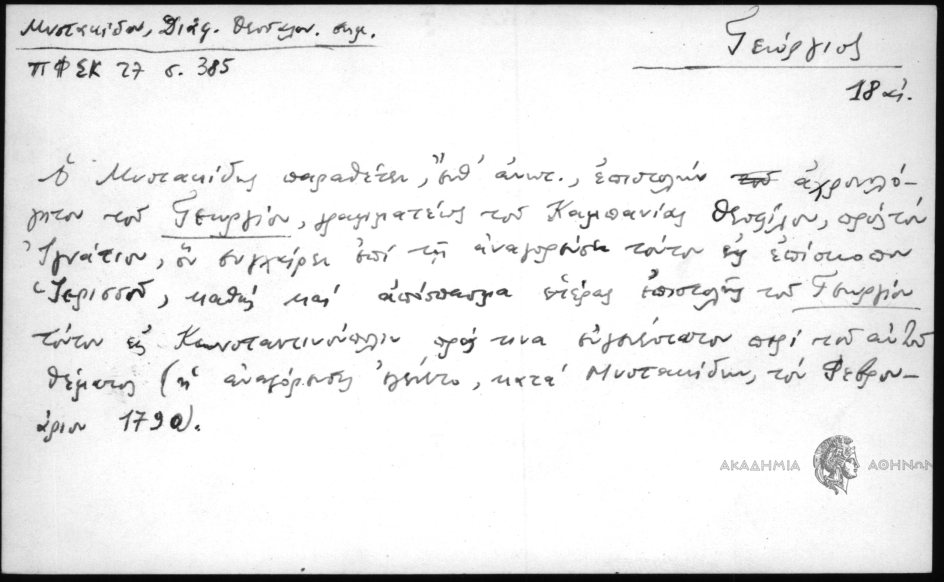 Μυστακίδου, Διάφ. Θεσσαλον. σημ.
ΠΦΣΚ 27 σ. 385
Γεώργιος
18 αἰ.
Ὁ Μυστακίδης παραθέτει, ἔνθ' ἀνωτ., ἐπιστολὴν ἀχρονολό-
γητον τοῦ Γεωργίου, γραμματέως τοῦ Καμπανίας Θεοφίλου, πρὸς τὸν
Ἰγνάτιον, ὃν συγχαίρει ἐπὶ τῇ ἀναγορεύσει τούτου εἰς ἐπίσκοπον
Ἱερισσοῦ, καθὼς καὶ ἀπόσπασμα ἑτέρας ἐπιστολῆς τοῦ Γεωργίου
τούτου εἰς Κωνσταντινούπολιν πρός τινα εὐγενέστατον περὶ τοῦ αὐτοῦ
θέματος (ἡ ἀναγόρευσις ἐγένετο, κατὰ Μυστακίδην, τὸν Φεβρου-
άριον 1790).
ΑΚΑΔΗΜΙΑ ΑΘΗΝΩΝ